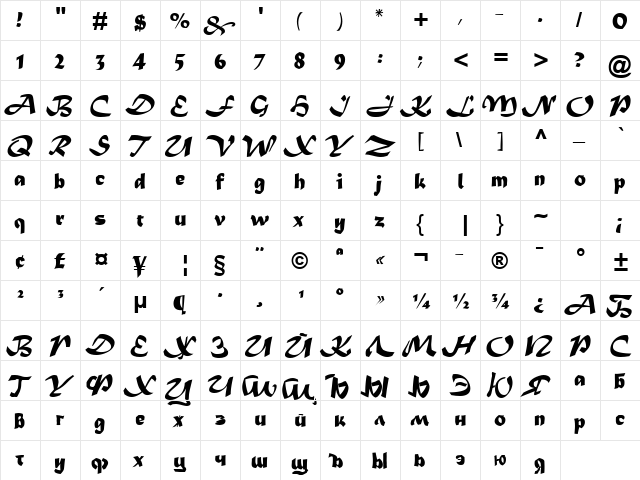 ! " # $ % & ' ( ) * + , - . / 0
1 2 3 4 5 6 7 8 9 : ; < = > ? @
A B C D E F G H I J K L M N O P
Q R S T U V W X Y Z [ \ ] ^ _ `
a b c d e f g h i j k l m n o p
q r s t u v w x y z { | } ~
¢ £ ¤ ¥ ¦ § ¨ © ª « ¬ - ® ¯ ° ±
² ³ ´ µ ¶ · ¸ ¹ º » ¼ ½ ¾ ¿ А Б
В Г Д Е Ж З И Й К Л М Н О П Р С
Т У Ф Х Ц Ч Ш Щ Ъ Ы Ь Э Ю Я а б
в г д е ж з и й к л м н о п р с
т у ф х ц ч ш щ ъ ы ь э ю я